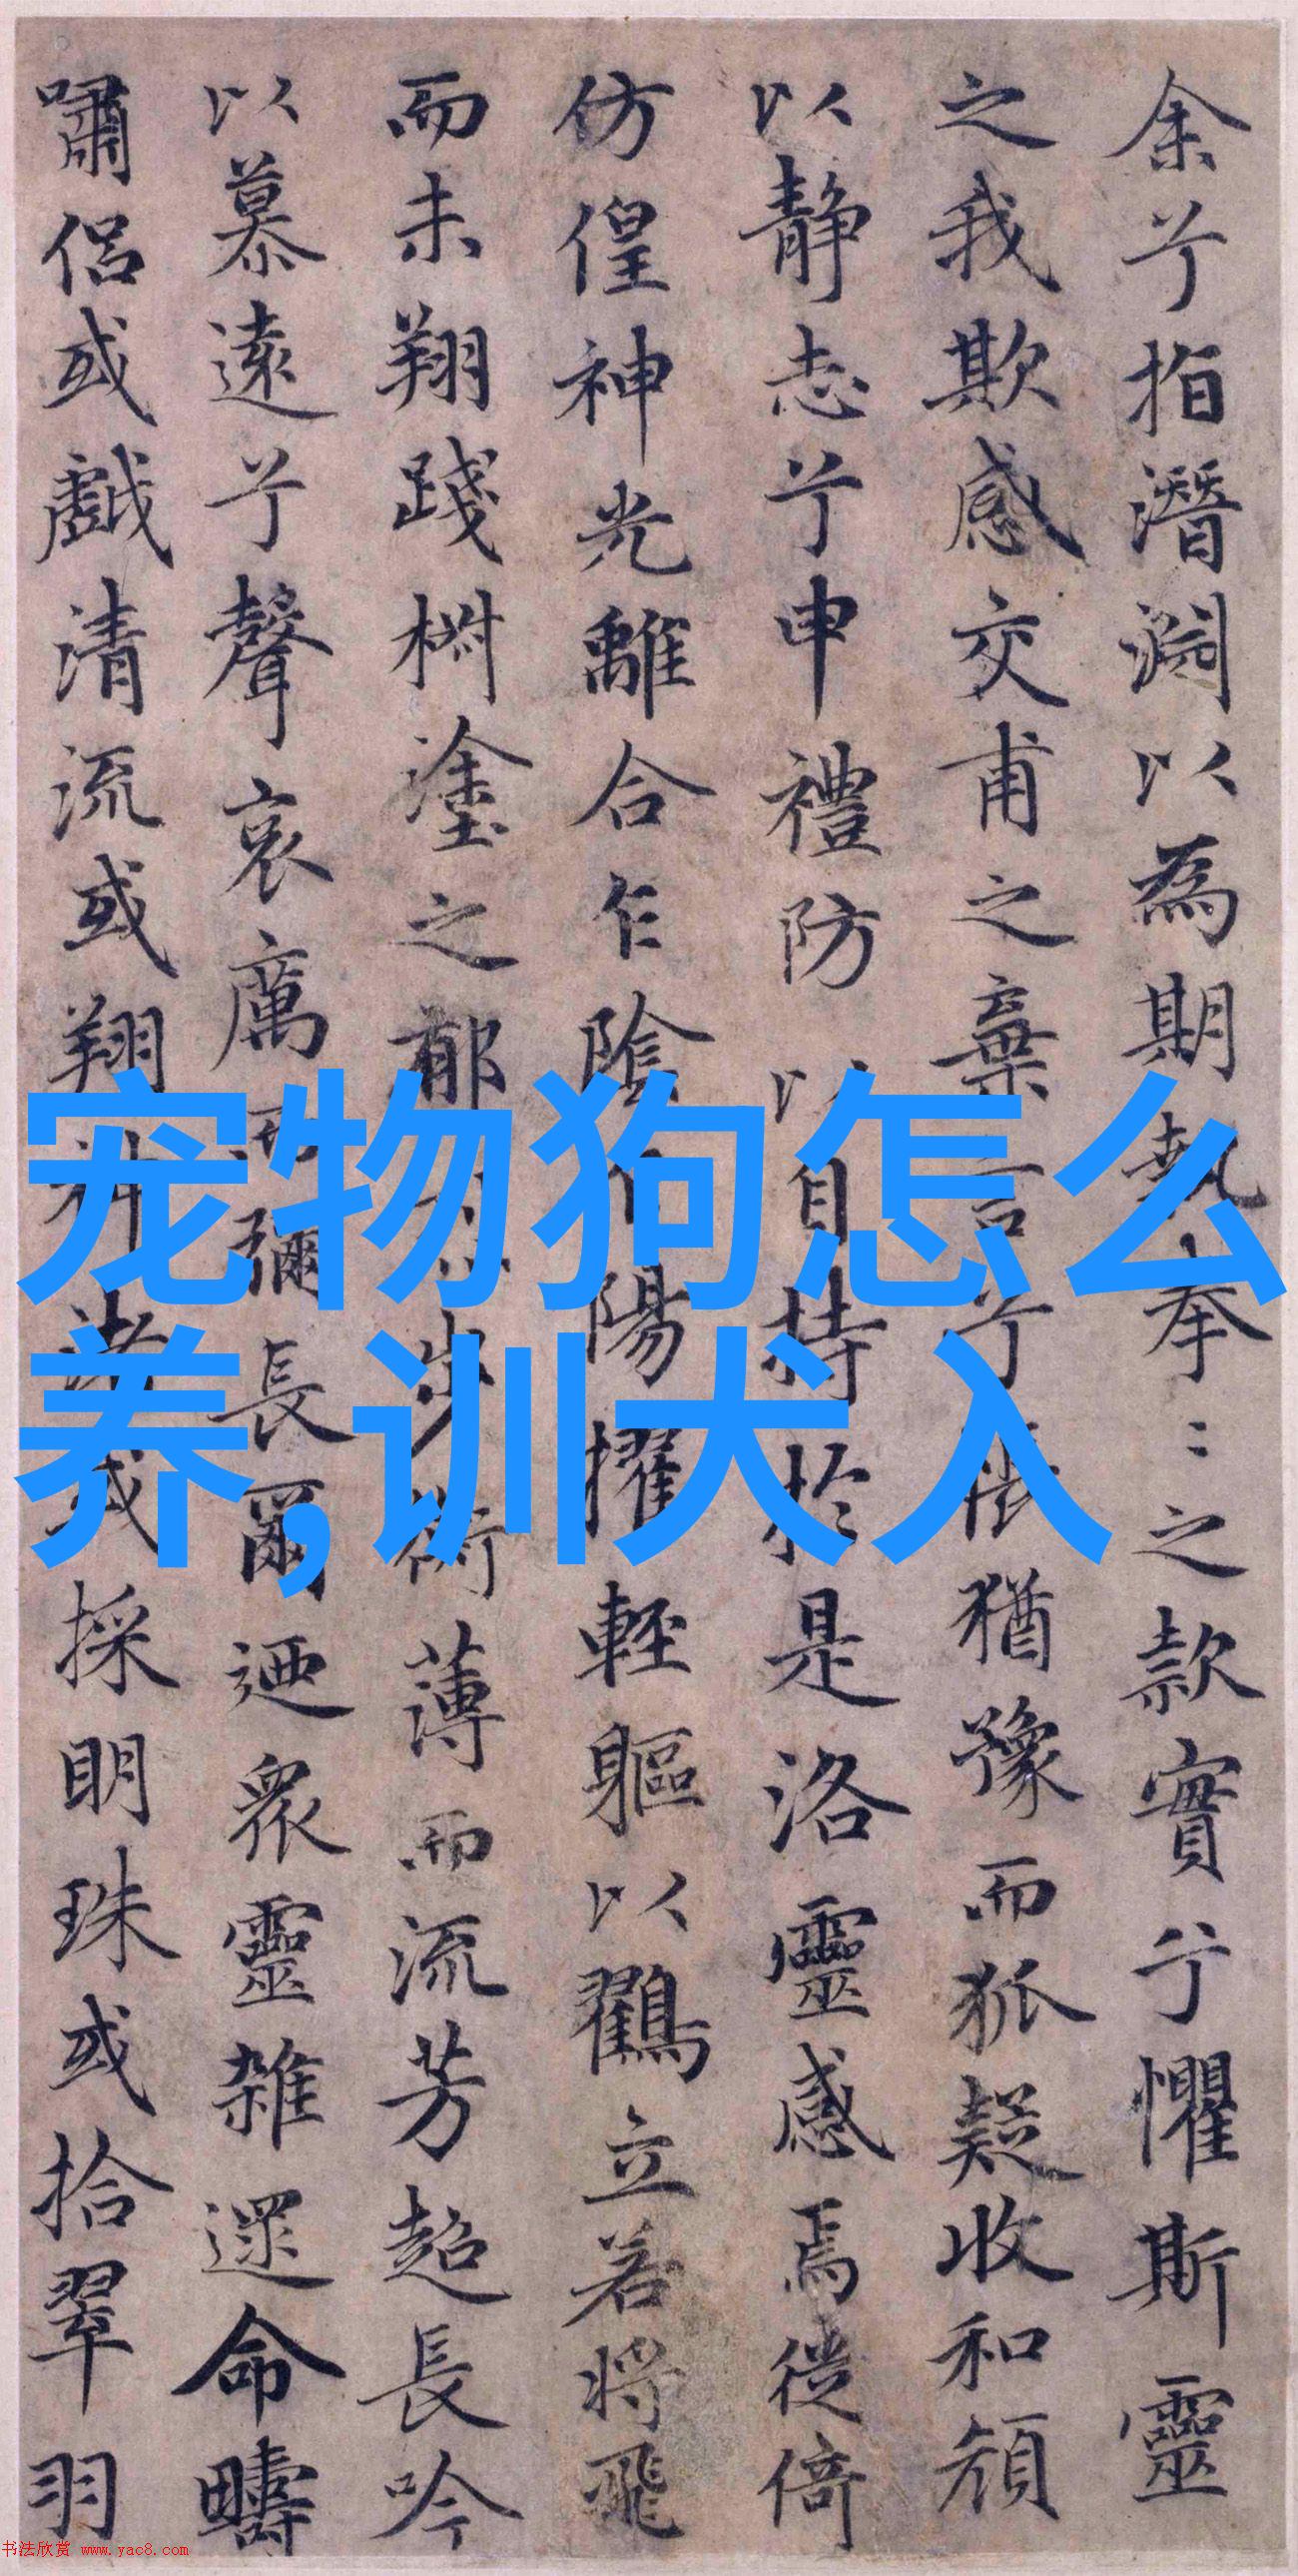 余兮指潛淵以為期執拳〻之款實兮懼斯靈
之我欺感交甫之棄言兮悵猶豫而狐疑收和顏
以靜志兮申禮防以自持於是洛靈感焉徙倚
仿偟神光離合乍陰乍陽擢輕軀以鶴立若將飛
而未翔踐椒塗之郁烈步蘅薄而流芳超長吟
以慕遠兮聲哀厲而彌長爾迺眾靈雜遝命疇
嘯侶或戲清流或翔神渚或採明珠或拾翠羽
宠物狗怎么
养,训犬入
书法欣赏 www.yac8.com